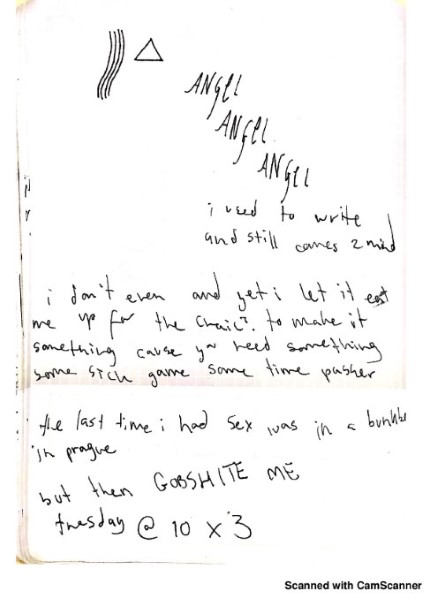 ANGEL
ANGEL
ANGEL
i used to write
and still comes 2 mind
i don't even and yet i let it eat
me up for the to make it
something cause you need something
some sick game some time pusher
the last time i had sex was in a
in prague
but then GOBSHITE ME
tuesday @ 10 x 3
Scanned with CamScanner